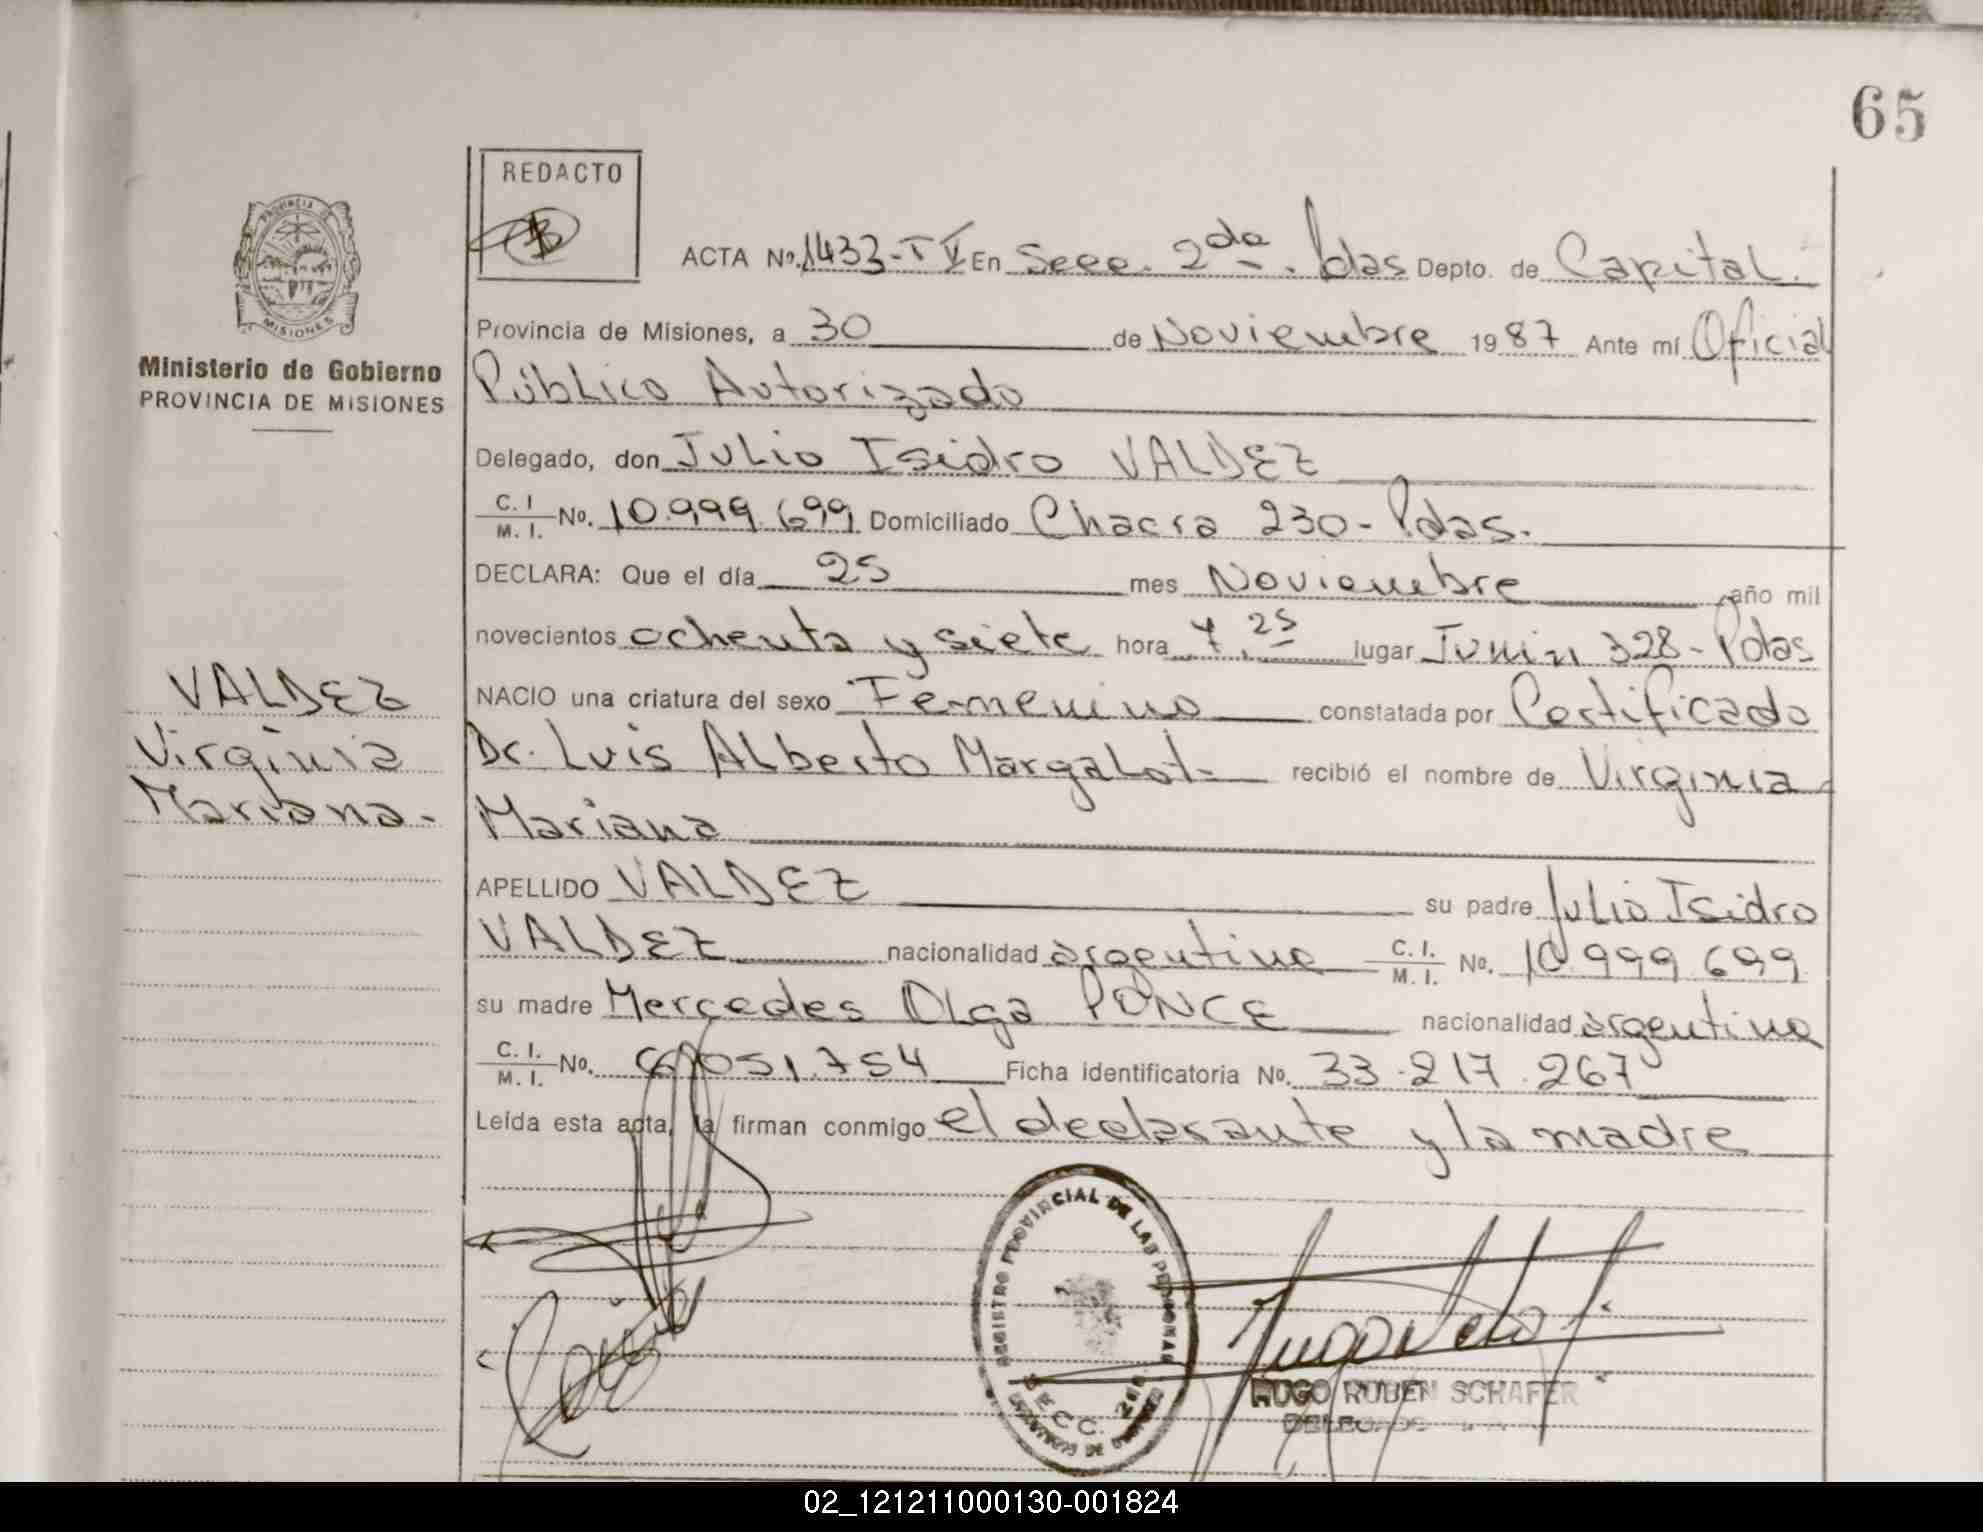 65
REDACTO
PROVINCIA DE
MISIONES
Ministerio de Gobierno
PROVINCIA DE MISIONES
ACTA Nº 1433-T V En Secc. 2da. Pdas Depto. de Capital.
Provincia de Misiones, a 30 de Noviembre 1987 Ante mí Oficial
Público Autorizado
Delegado, don Julio Isidro VALDEZ
C. I / M. I. Nº. 10.999.699 Domiciliado Chacra 230-Pdas.
DECLARA: Que el día 25 mes Noviembre año mil
novecientos ochenta y siete hora 7,25 lugar Junin 328-Pdas
NACIO una criatura del sexo Femenino constatada por Certificado
Dr. Luis Alberto Margalot recibió el nombre de Virginia
Mariana
APELLIDO VALDEZ su padre Julio Isidro
VALDEZ nacionalidad argentina C. I. / M. I. Nº. 10.999.699
su madre Mercedes Olga PONCE nacionalidad argentina
C. I. / M. I. Nº. 051.754 Ficha identificatoria Nº. 33.217.267
Leída esta acta, la firman conmigo el declarante y la madre
VALDEZ
Virginia
Mariana-
REGISTRO PROVINCIAL DE LAS PERSONAS
SECC. 2da
HUGO RUBEN SCHAFER
DELEGADO
02_121211000130-001824